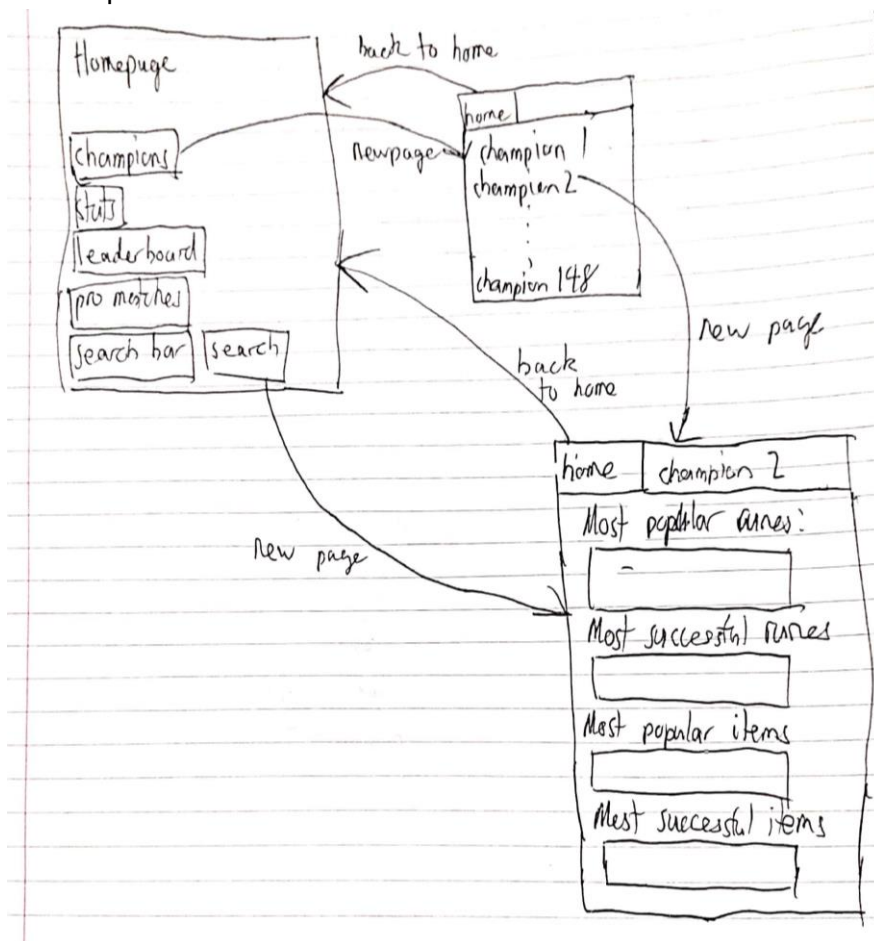 Homepage
champions
stats
leaderboard
pro matches
search bar
search
back to home
home
new page
champion 1
champion 2
champion 148
new page
back
to home
new page
home
champion 2
Most popular runes:
Most successful runes
Most popular items
Most successful items